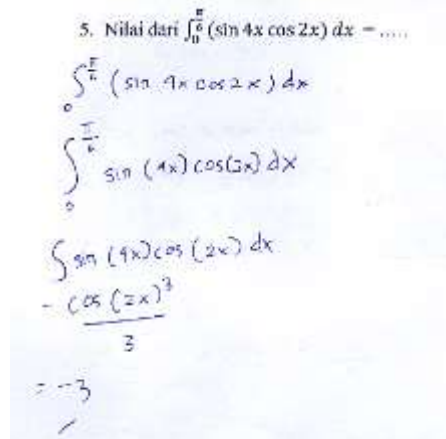 5. Nilai dari ∫₀^(π/6) (sin 4x cos 2x) dx = .....
∫₀^(π/6) (sin 4x cos 2x) dx
∫₀^(π/6) sin (4x) cos(2x) dx
∫ sin (4x) cos (2x) dx
- cos (2x)³
3
= -3